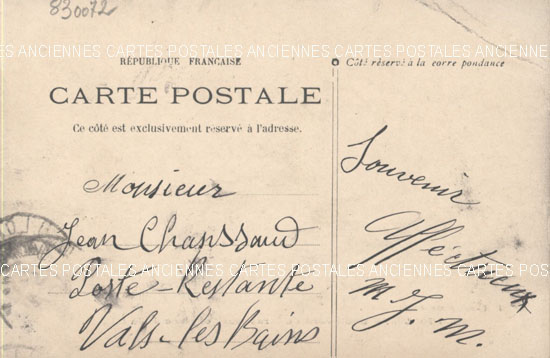 830072
ANCIENNES CARTES POSTALES ANCIENNES CARTES POSTALES ANCIENNES CARTES POSTALES
RÉPUBLIQUE FRANÇAISE
CARTE POSTALE
Ce côté est exclusivement réservé à l'adresse.
Monsieur
Jean Chanssaud
Poste-Restante
Vals-les Bains
Côté réservé à la corre pondance
Souvenir
Affectueux
M. J. M.
CARTES POSTALES ANCIENNES CARTES POSTALES ANCIENNES CARTES POSTALES